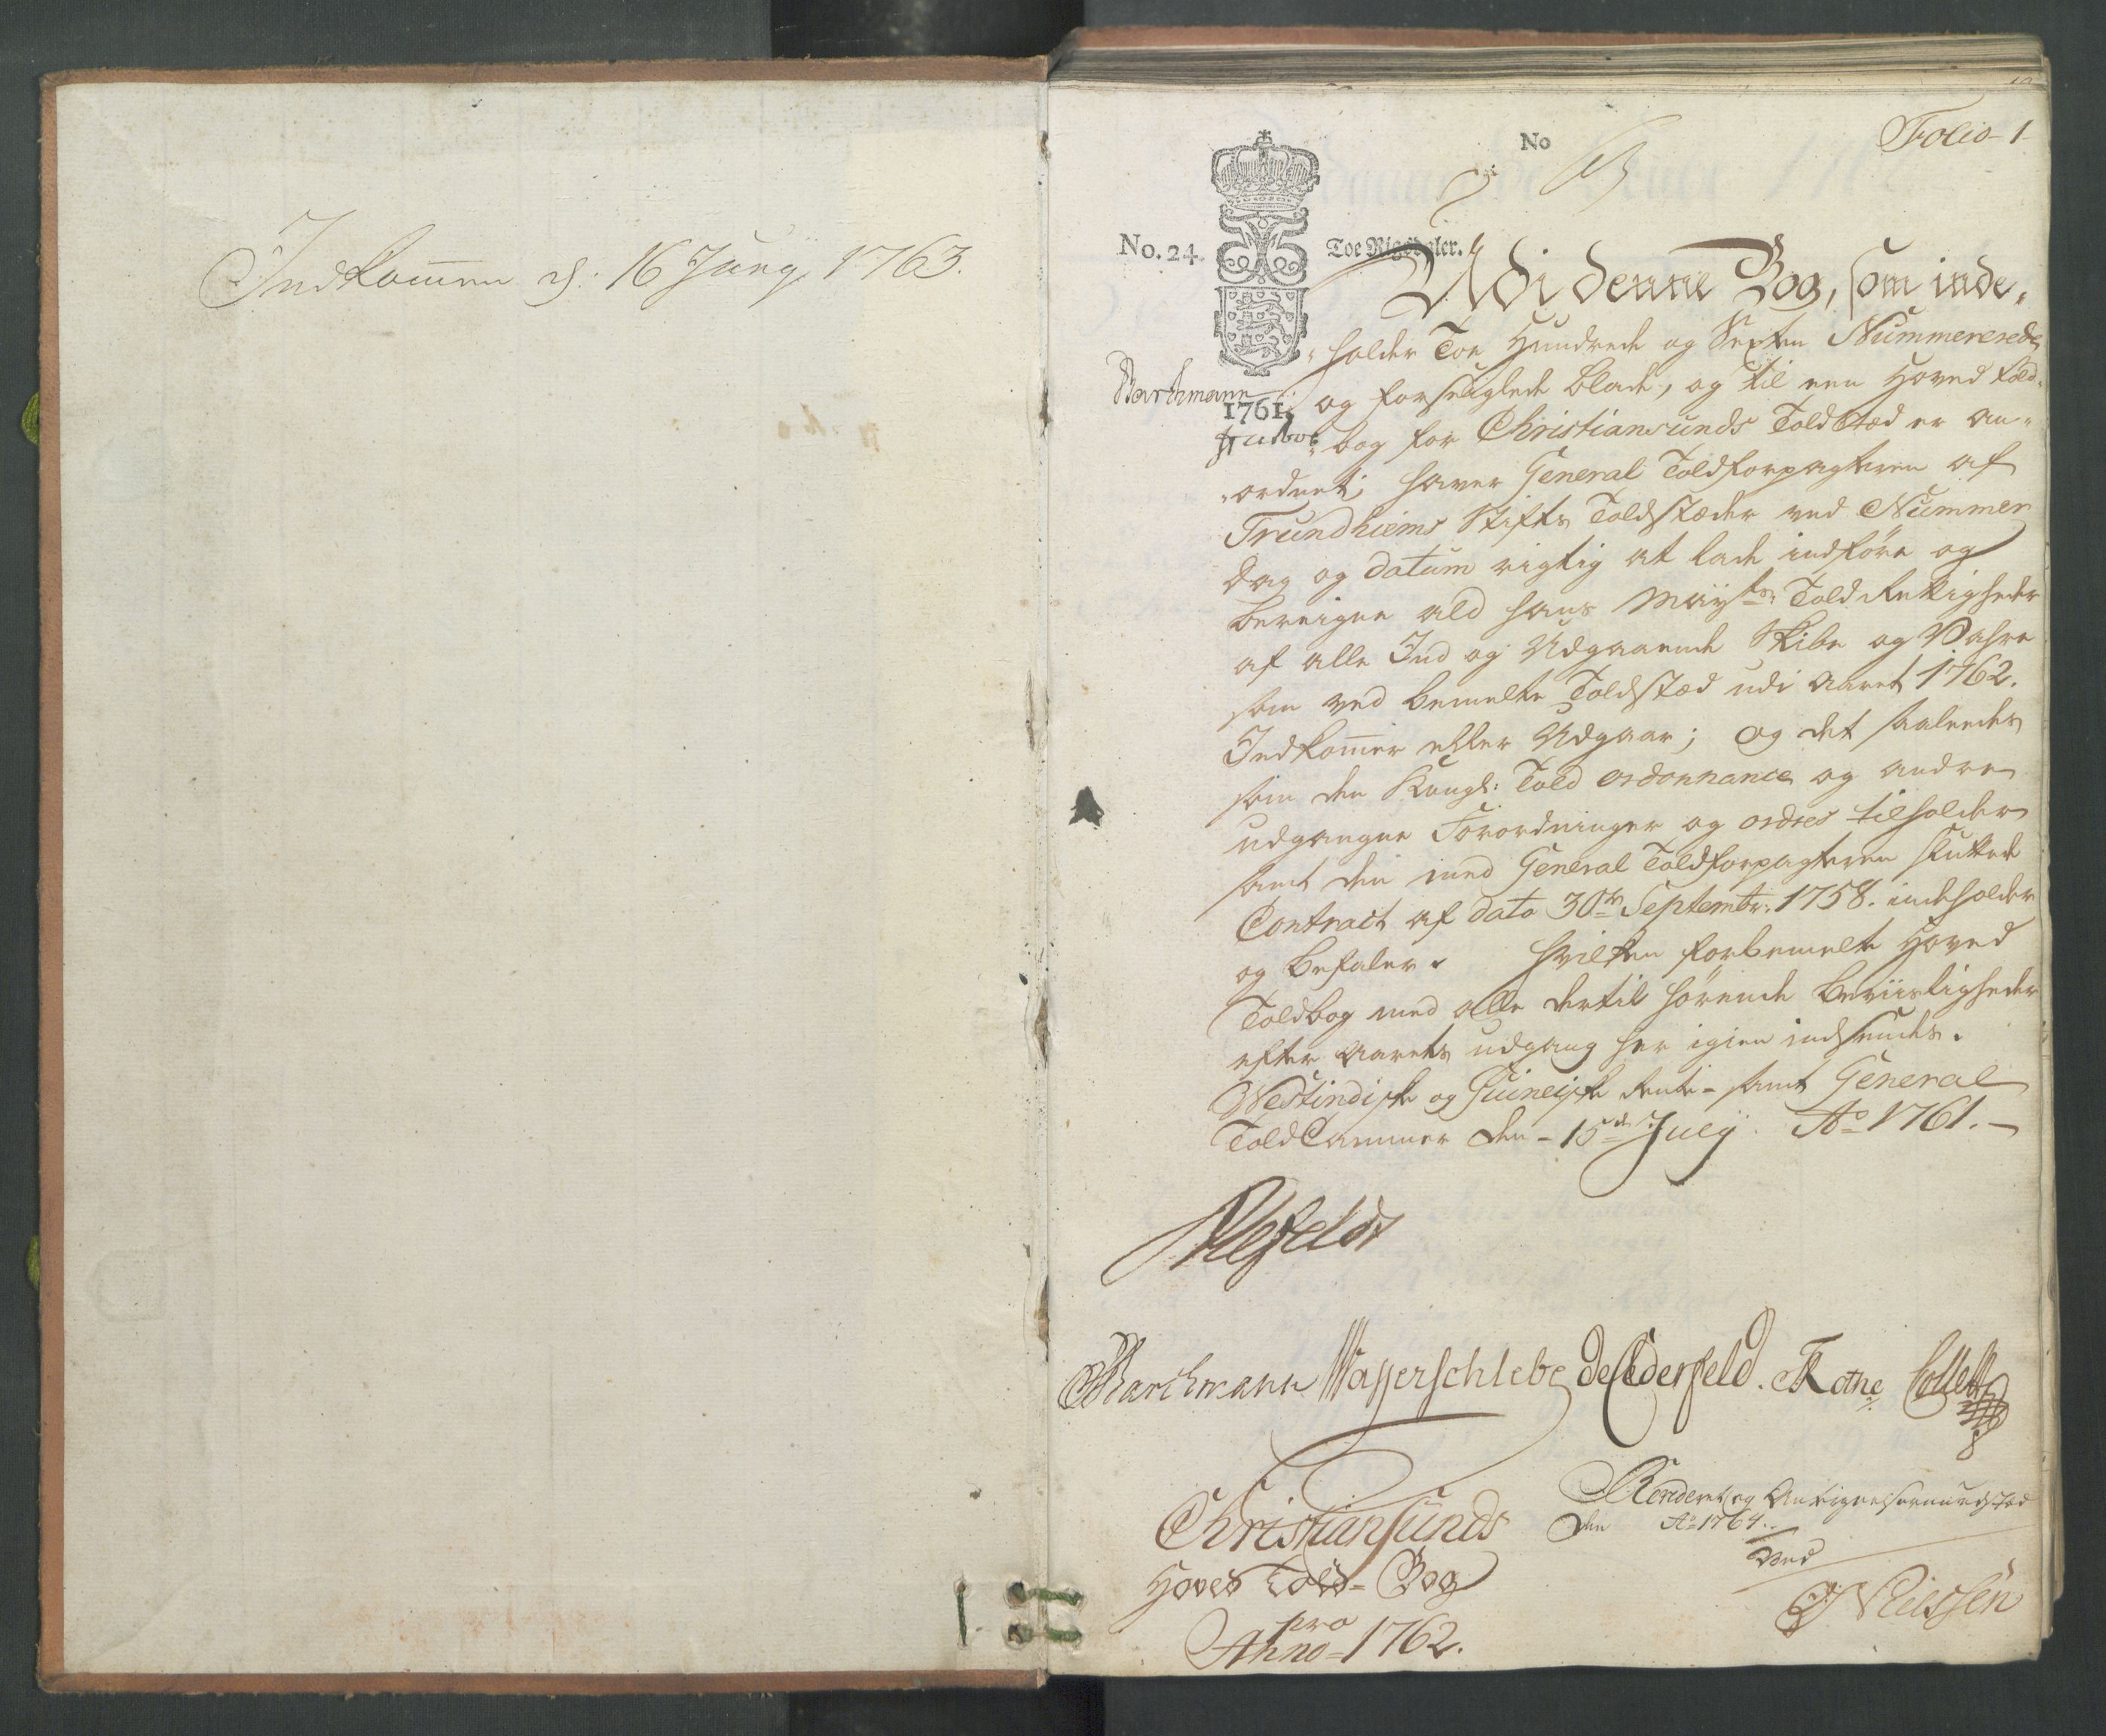 Indkom̅en d: 16 Juny 1763.
Folio 1
No
No. 24.
Toe Rigsdaler.
Udi denne Bog, som inde„
„holder Toe Hundrede og Sexten Nummererede
Barchmann
1761.
og forseiglede blade, og til een Hoved told„
„bog for Christiansunds Toldstæd er an„
„ordnet; haver General Toldforpagteren af
Trundhiems Stifts Toldstæder ved Nummer
Dag og datum rigtig at lade indføre og
bereigne ald hans Mayts: Told Rettigheder
af alle Ind og Udgaaende Skibe og Vahre
som ved bemelte Toldstæd udi Aaret 1762.
Indkom̅er eller Udgaar; og det saaledes
som den Kongl: Told ordonnance og andre
udgangne Forordninger og ordres tilholder
samt den med General Toldforpagteren sluttede
Contract af dato 30te Septembr: 1758. indeholder
og befaler. Hvilken forbemelte Hoved
Toldbog med alle dertil hørende beviisligheder
efter Aarets udgang her igien indsendes.
Westindiske og Guineiske Rente- samt General
ToldCammer den - 15de Julÿ. Ao 1761. -
Ahlefeldt
Barchmann Wasserschlebe de Cederfeld. Rothe Collett
Christiansunds
Hoved Told- Bog
pro
Anno 1762.
den Ao 1764.
ved
Nielssen